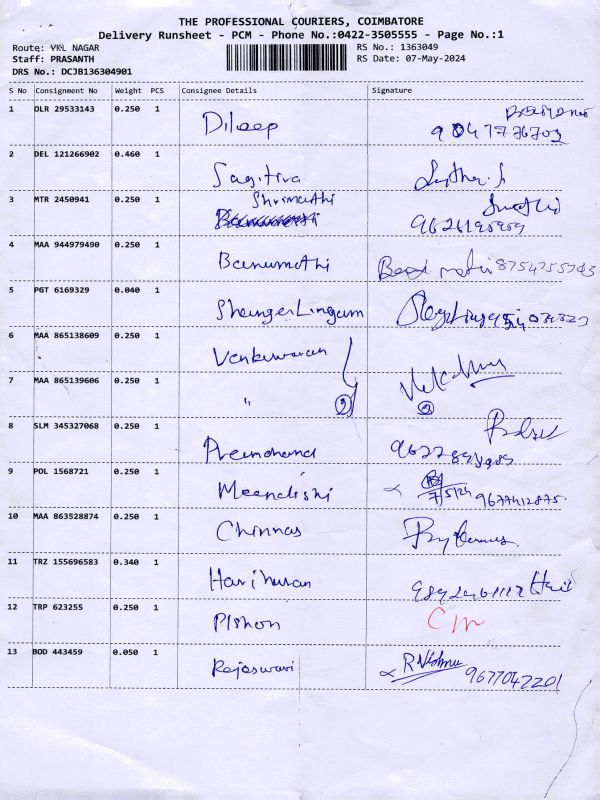 THE PROFESSIONAL COURIERS, COIMBATORE
Delivery Runsheet - PCM - Phone No.:0422-3505555 - Page No.:1
Route: VKL NAGAR RS No.: 1363049
Staff: PRASANTH RS Date: 07-May-2024
DRS No.: DCJB136304901
S No Consignment No Weight PCS Consignee Details Signature
1 DLR 29533143 0.250 1 Dileep
2 DEL 121266902 0.460 1 Sagitiva
Shrimathi
3 MTR 2450941 0.250 1
4 MAA 944979490 0.250 1 Banumathi 8754755743
5 PGT 6169329 0.040 1 Shanger Lingam
6 MAA 865138609 0.250 1 Venkuwaran
7 MAA 865139606 0.250 1 " 2 2
8 SLM 345327068 0.250 1 Premchand
9 POL 1568721 0.250 1 Meenakshi 7/5/24 9677412875
10 MAA 863528874 0.250 1 Chinnas
11 TRZ 155696583 0.340 1 Hariharan Hari
12 TRP 623255 0.250 1
13 BOD 443459 0.050 1 Rajaswari R Vishnu 9677047201